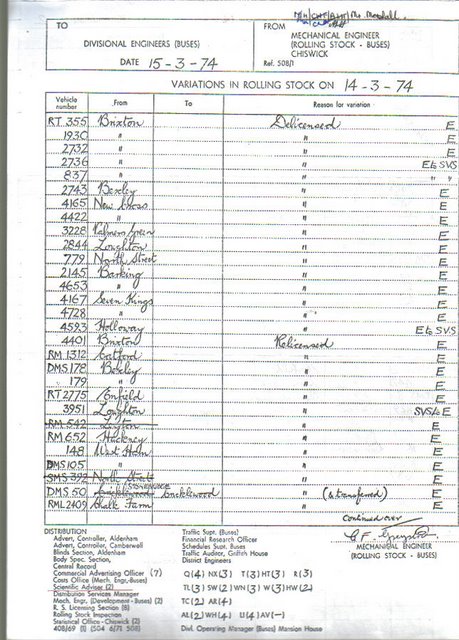 M/H/CHF/AHF/Mr. Marshall.
TO
FROM
MECHANICAL ENGINEER
DIVISIONAL ENGINEERS (BUSES)
(ROLLING STOCK - BUSES)
CHISWICK
DATE 15-3-74
Ref. 508/1
VARIATIONS IN ROLLING STOCK ON 14-3-74
Vehicle number From To Reason for variation
RT 355 Brixton Delicensed E
1930 " " E
2732 " " E
2736 " " E to SVS
837 " " " "
2743 Bexley " E
4165 New Cross " E
4422 " " E
3228 Palmers Green " E
2844 Loughton " E
779 North Street " E
2145 Barking " E
4653 " " E
4167 Seven Kings " E
4728 " " E
4523 Holloway " E to SVS
4401 Brixton Relicensed E
RM 1312 Catford " E
DMS 178 Bexley " E
179 " " E
RT 2775 Enfield " E
3951 Loughton " SVS to E
RM 542 Leyton " E
RM 652 Hackney " E
148 West Ham " E
DMS 105 " " E
SMS 392 North Street " E
DMS 50 Cricklewood " (& transferred) E
RML 2409 Chalk Farm " E
Continued over
DISTRIBUTION
Advert, Controller, Aldenham
Advert, Controller, Camberwell
Blinds Section, Aldenham
Body Spec. Section,
Central Record
Commercial Advertising Officer (7)
Costs Office (Mech. Engr.-Buses)
Scientific Adviser (2)
Distribution Services Manager
Mech. Engr. (Development - Buses) (2)
R. S. Licensing Section (8)
Rolling Stock Inspection
Statistical Office - Chiswick (2)
408/69 (1) (504 6/71 508)
Traffic Supt. (Buses)
Financial Research Officer
Schedules Supt. Buses
Traffic Auditor, Griffith House
District Engineers
Q(4) NX(3) T(3) HT(3) R(3)
TL(3) SW(2) WN(3) W(3) HW(2)
TC(2) AR(4)
AL(2) WH(4) U(4) AV(-)
Divl. Operating Manager (Buses) Mansion House
MECHANICAL ENGINEER
(ROLLING STOCK - BUSES)